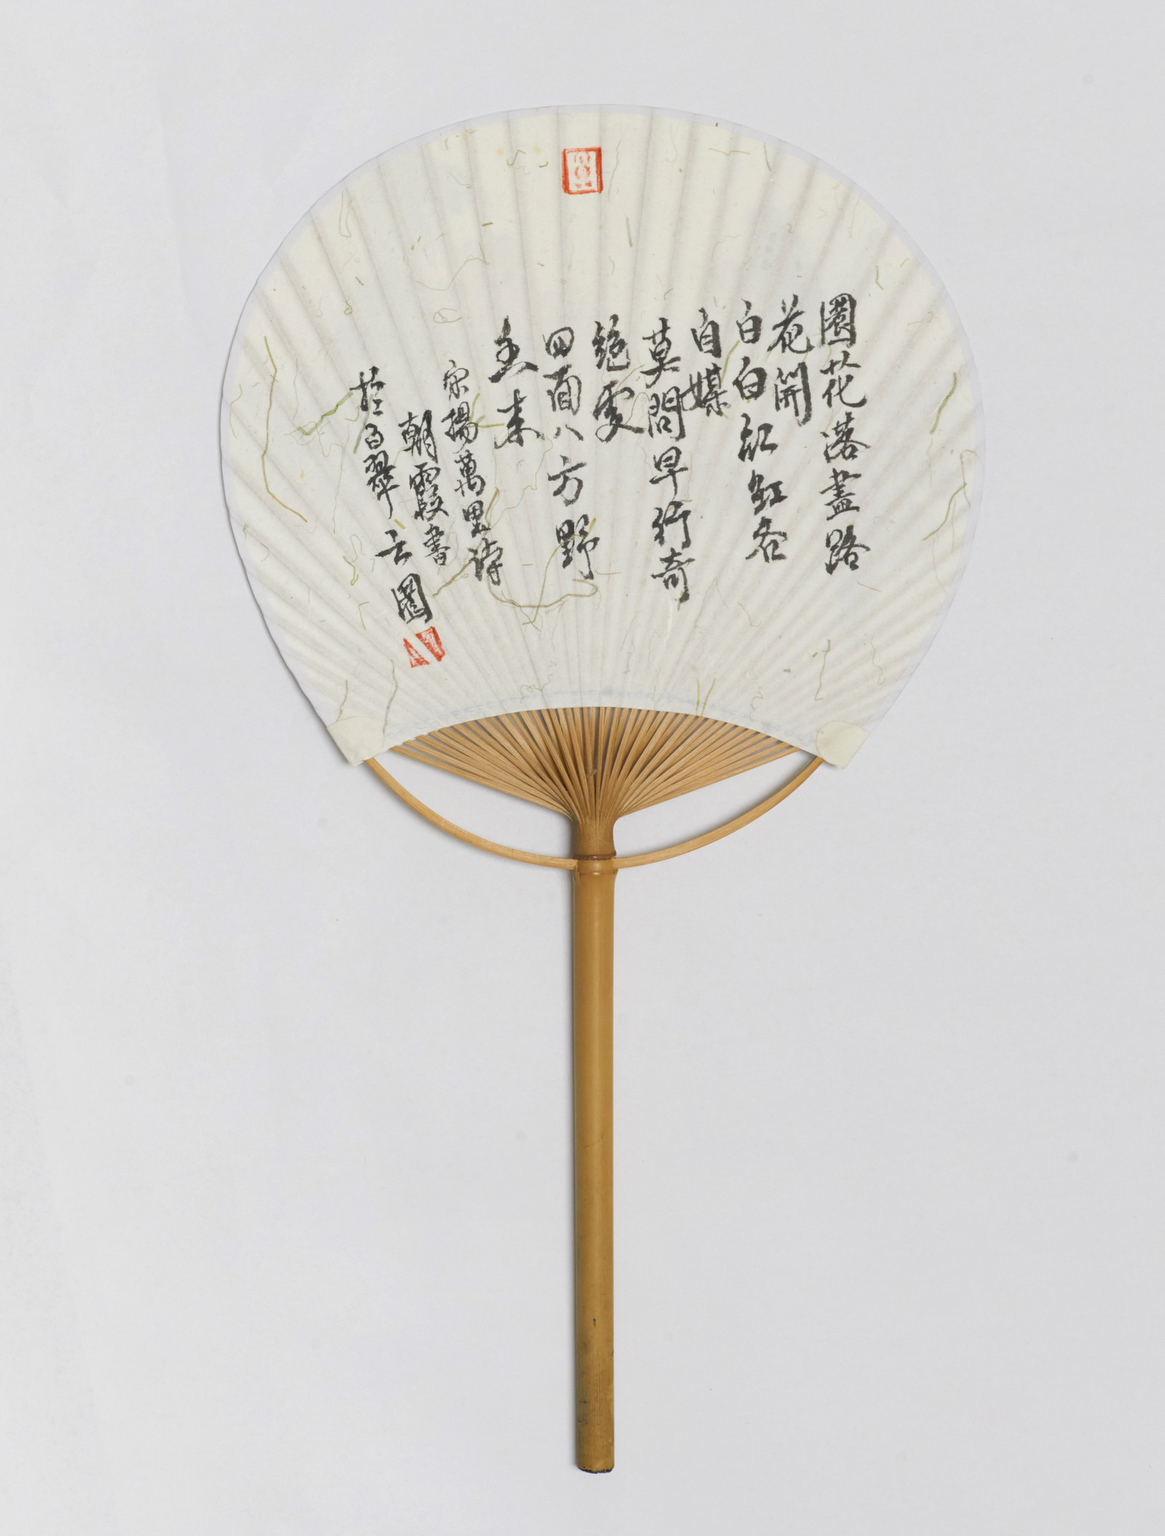 園花落盡路
花開
白白紅紅各
自媒
莫問早行奇
絕處
四面八方野
香来
宋揚萬里詩
朝霞書
於百翠
云園